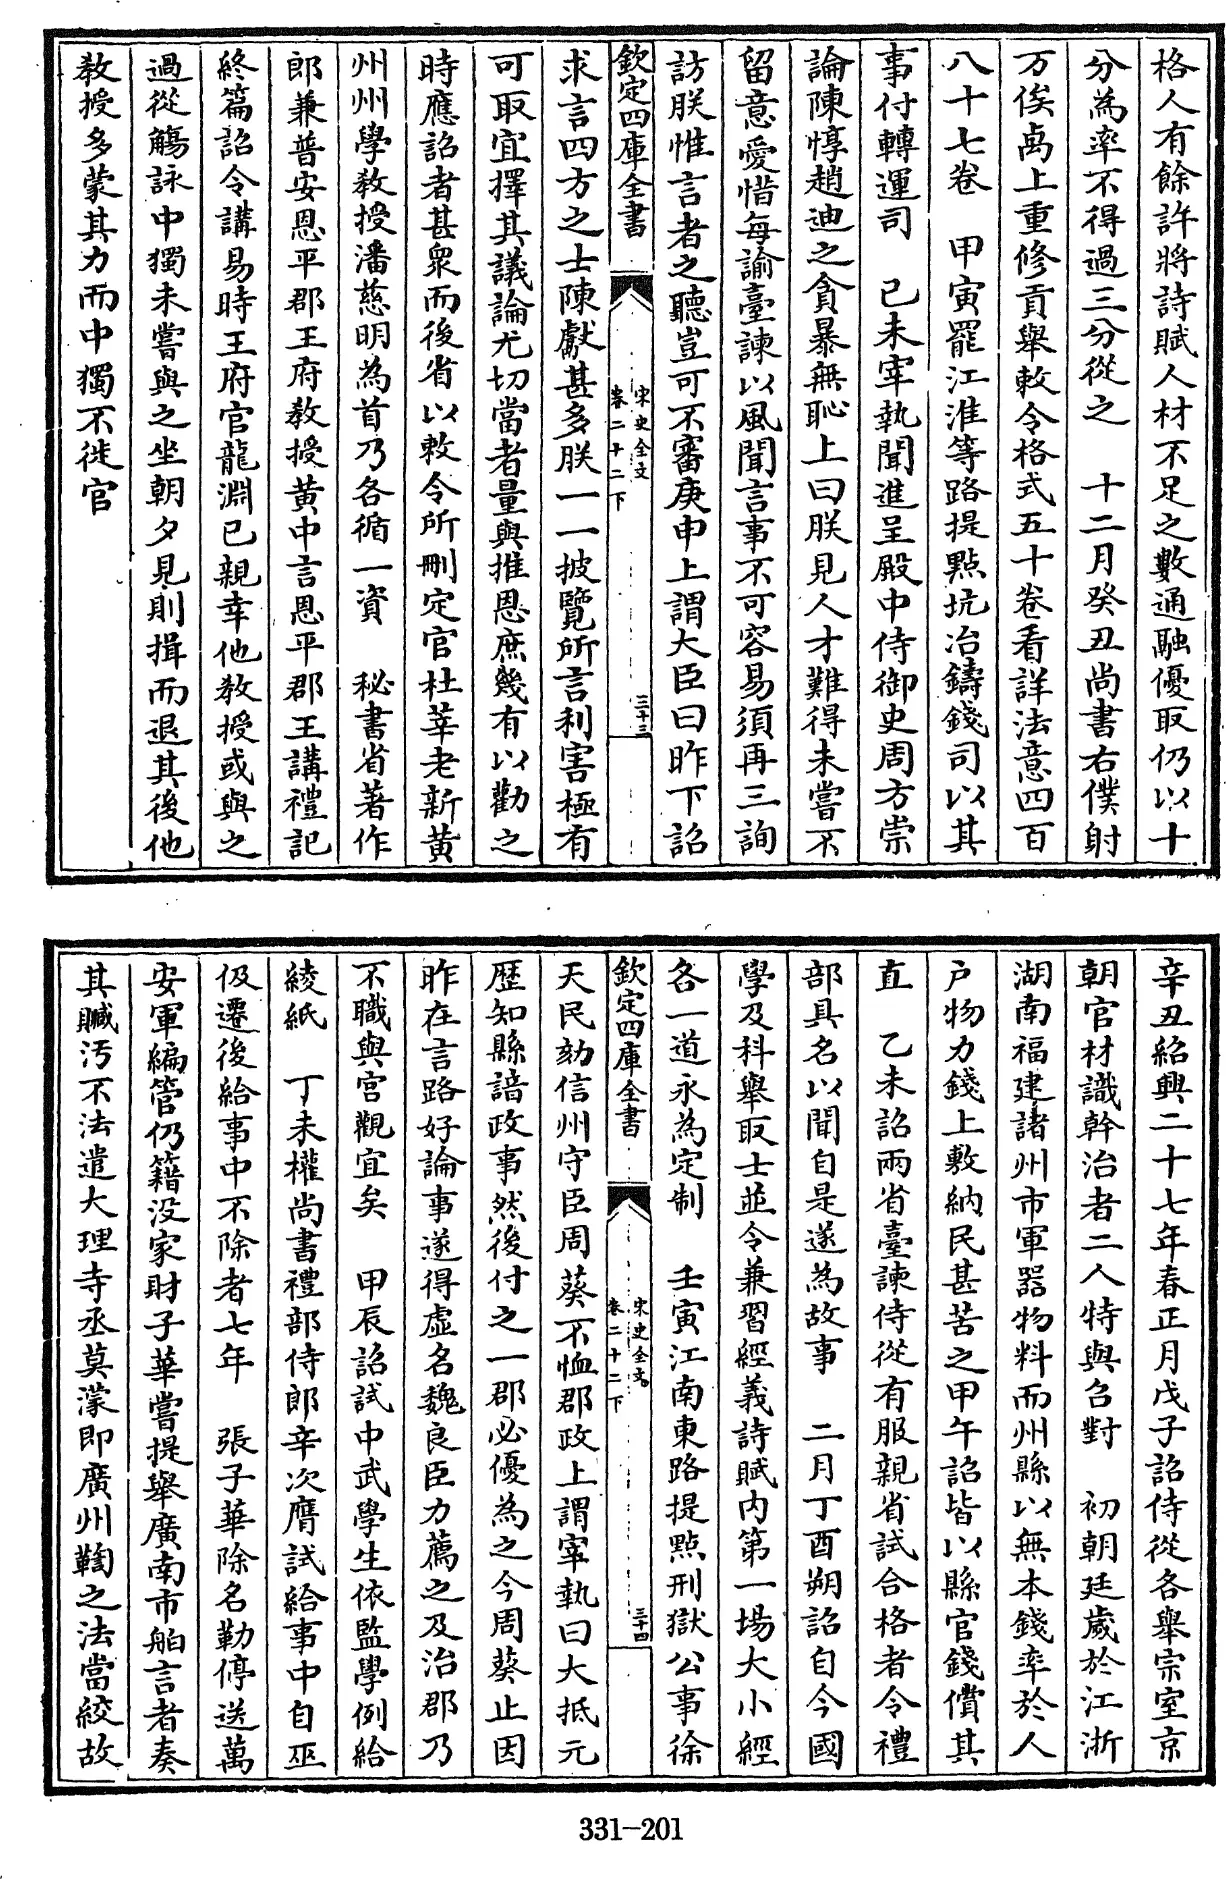 格人有餘許將詩賦人材不足之數通融優取仍以十
分為率不得過三分從之　十二月癸丑尚書右僕射
万俟卨上重修貢舉敕令格式五十卷看詳法意四百
八十七卷　甲寅罷江淮等路提點坑冶鑄錢司以其
事付轉運司　己未宰執聞進呈殿中侍御史周方崇
論陳惇趙迪之貪暴無恥上曰朕見人才難得未嘗不
留意愛惜每諭臺諫以風聞言事不可容易須再三詢
訪朕惟言者之聽豈可不審庚申上謂大臣曰昨下詔
欽定四庫全書
宋史全文
卷二十二下
三十三
求言四方之士陳獻甚多朕一一披覽所言利害極有
可取宜擇其議論尤切當者量與推恩庶幾有以勸之
時應詔者甚衆而後省以敕令所刪定官杜莘老新黃
州州學教授潘慈明為首乃各循一資　秘書省著作
郎兼普安恩平郡王府教授黃中言恩平郡王講禮記
終篇詔令講易時王府官龍淵已親幸他教授或與之
過從觴詠中獨未嘗與之坐朝夕見則揖而退其後他
教授多蒙其力而中獨不徙官
辛丑紹興二十七年春正月戊子詔侍從各舉宗室京
朝官材識幹治者二人特與召對　初朝廷歲於江浙
湖南福建諸州市軍器物料而州縣以無本錢率於人
户物力錢上敷納民甚苦之甲午詔皆以縣官錢償其
直　乙未詔兩省臺諫侍從有服親省試合格者令禮
部具名以聞自是遂為故事　二月丁酉朔詔自今國
學及科舉取士並令兼習經義詩賦内第一場大小經
各一道永為定制　壬寅江南東路提點刑獄公事徐
欽定四庫全書
宋史全文
卷二十二下
三十四
天民劾信州守臣周葵不恤郡政上謂宰執曰大抵元
歷知縣諳政事然後付之一郡必優為之今周葵止因
昨在言路好論事遂得虛名魏良臣力薦之及治郡乃
不職與宮觀宜矣　甲辰詔試中武學生依監學例給
綾紙　丁未權尚書禮部侍郎辛次膺試給事中自巫
伋遷後給事中不除者七年　張子華除名勒停送萬
安軍編管仍籍没家財子華嘗提舉廣南市舶言者奏
其贓汚不法遣大理寺丞莫濛即廣州鞫之法當絞故
331-201